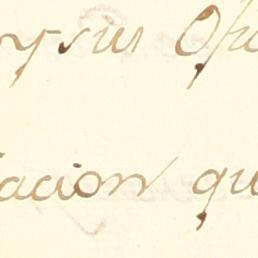 y sus Ofi
acion qu